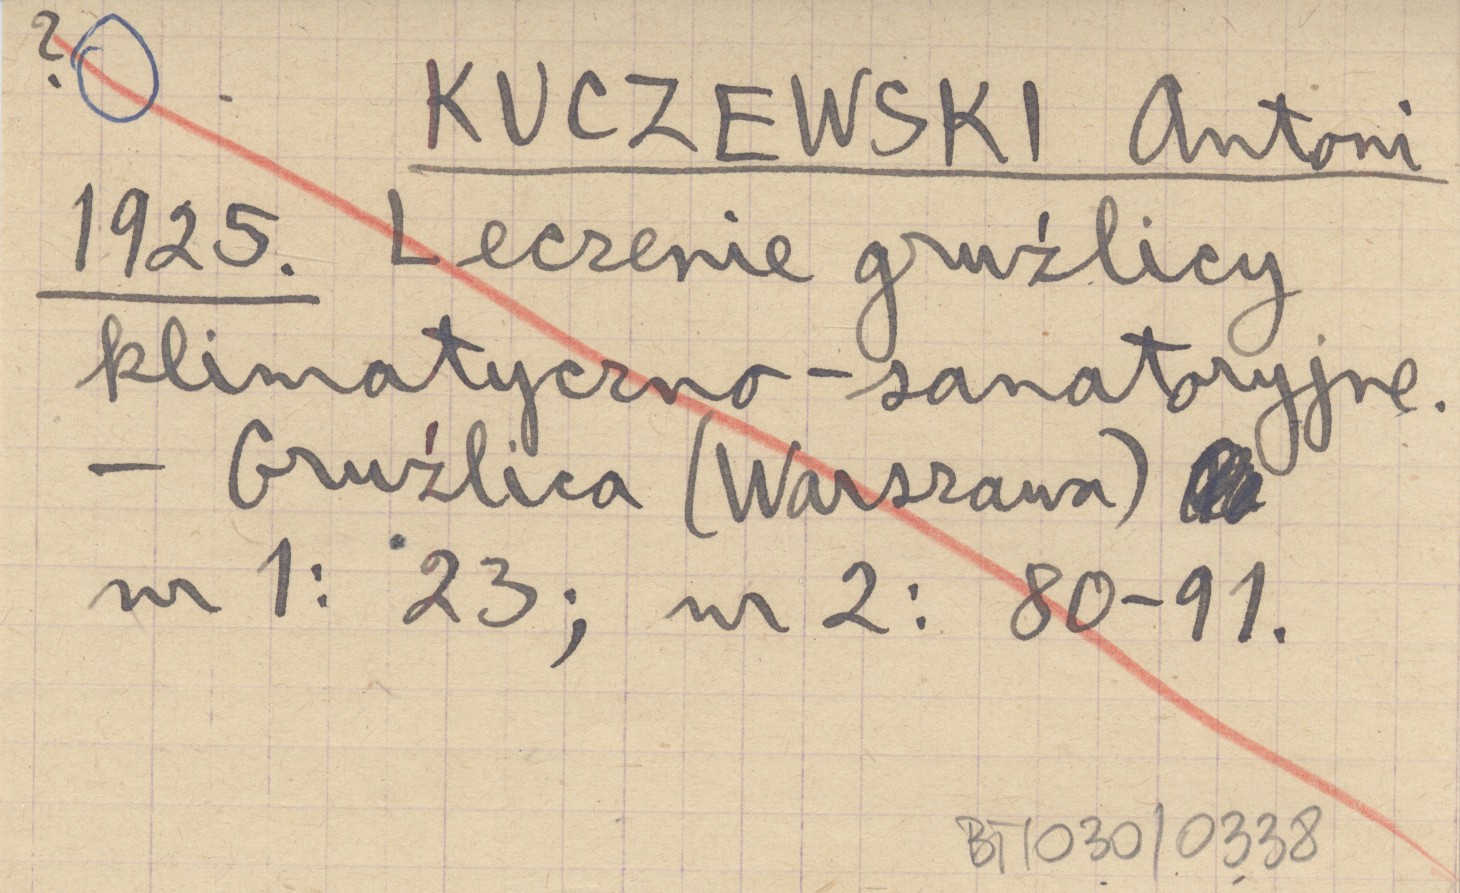 ?
KUCZEWSKI Antoni
1925. Leczenie gruźlicy
klimatyczno-sanatoryjne.
- Gruźlica (Warszawa)
nr 1: 23; nr 2: 80-91.
BT/030/0338